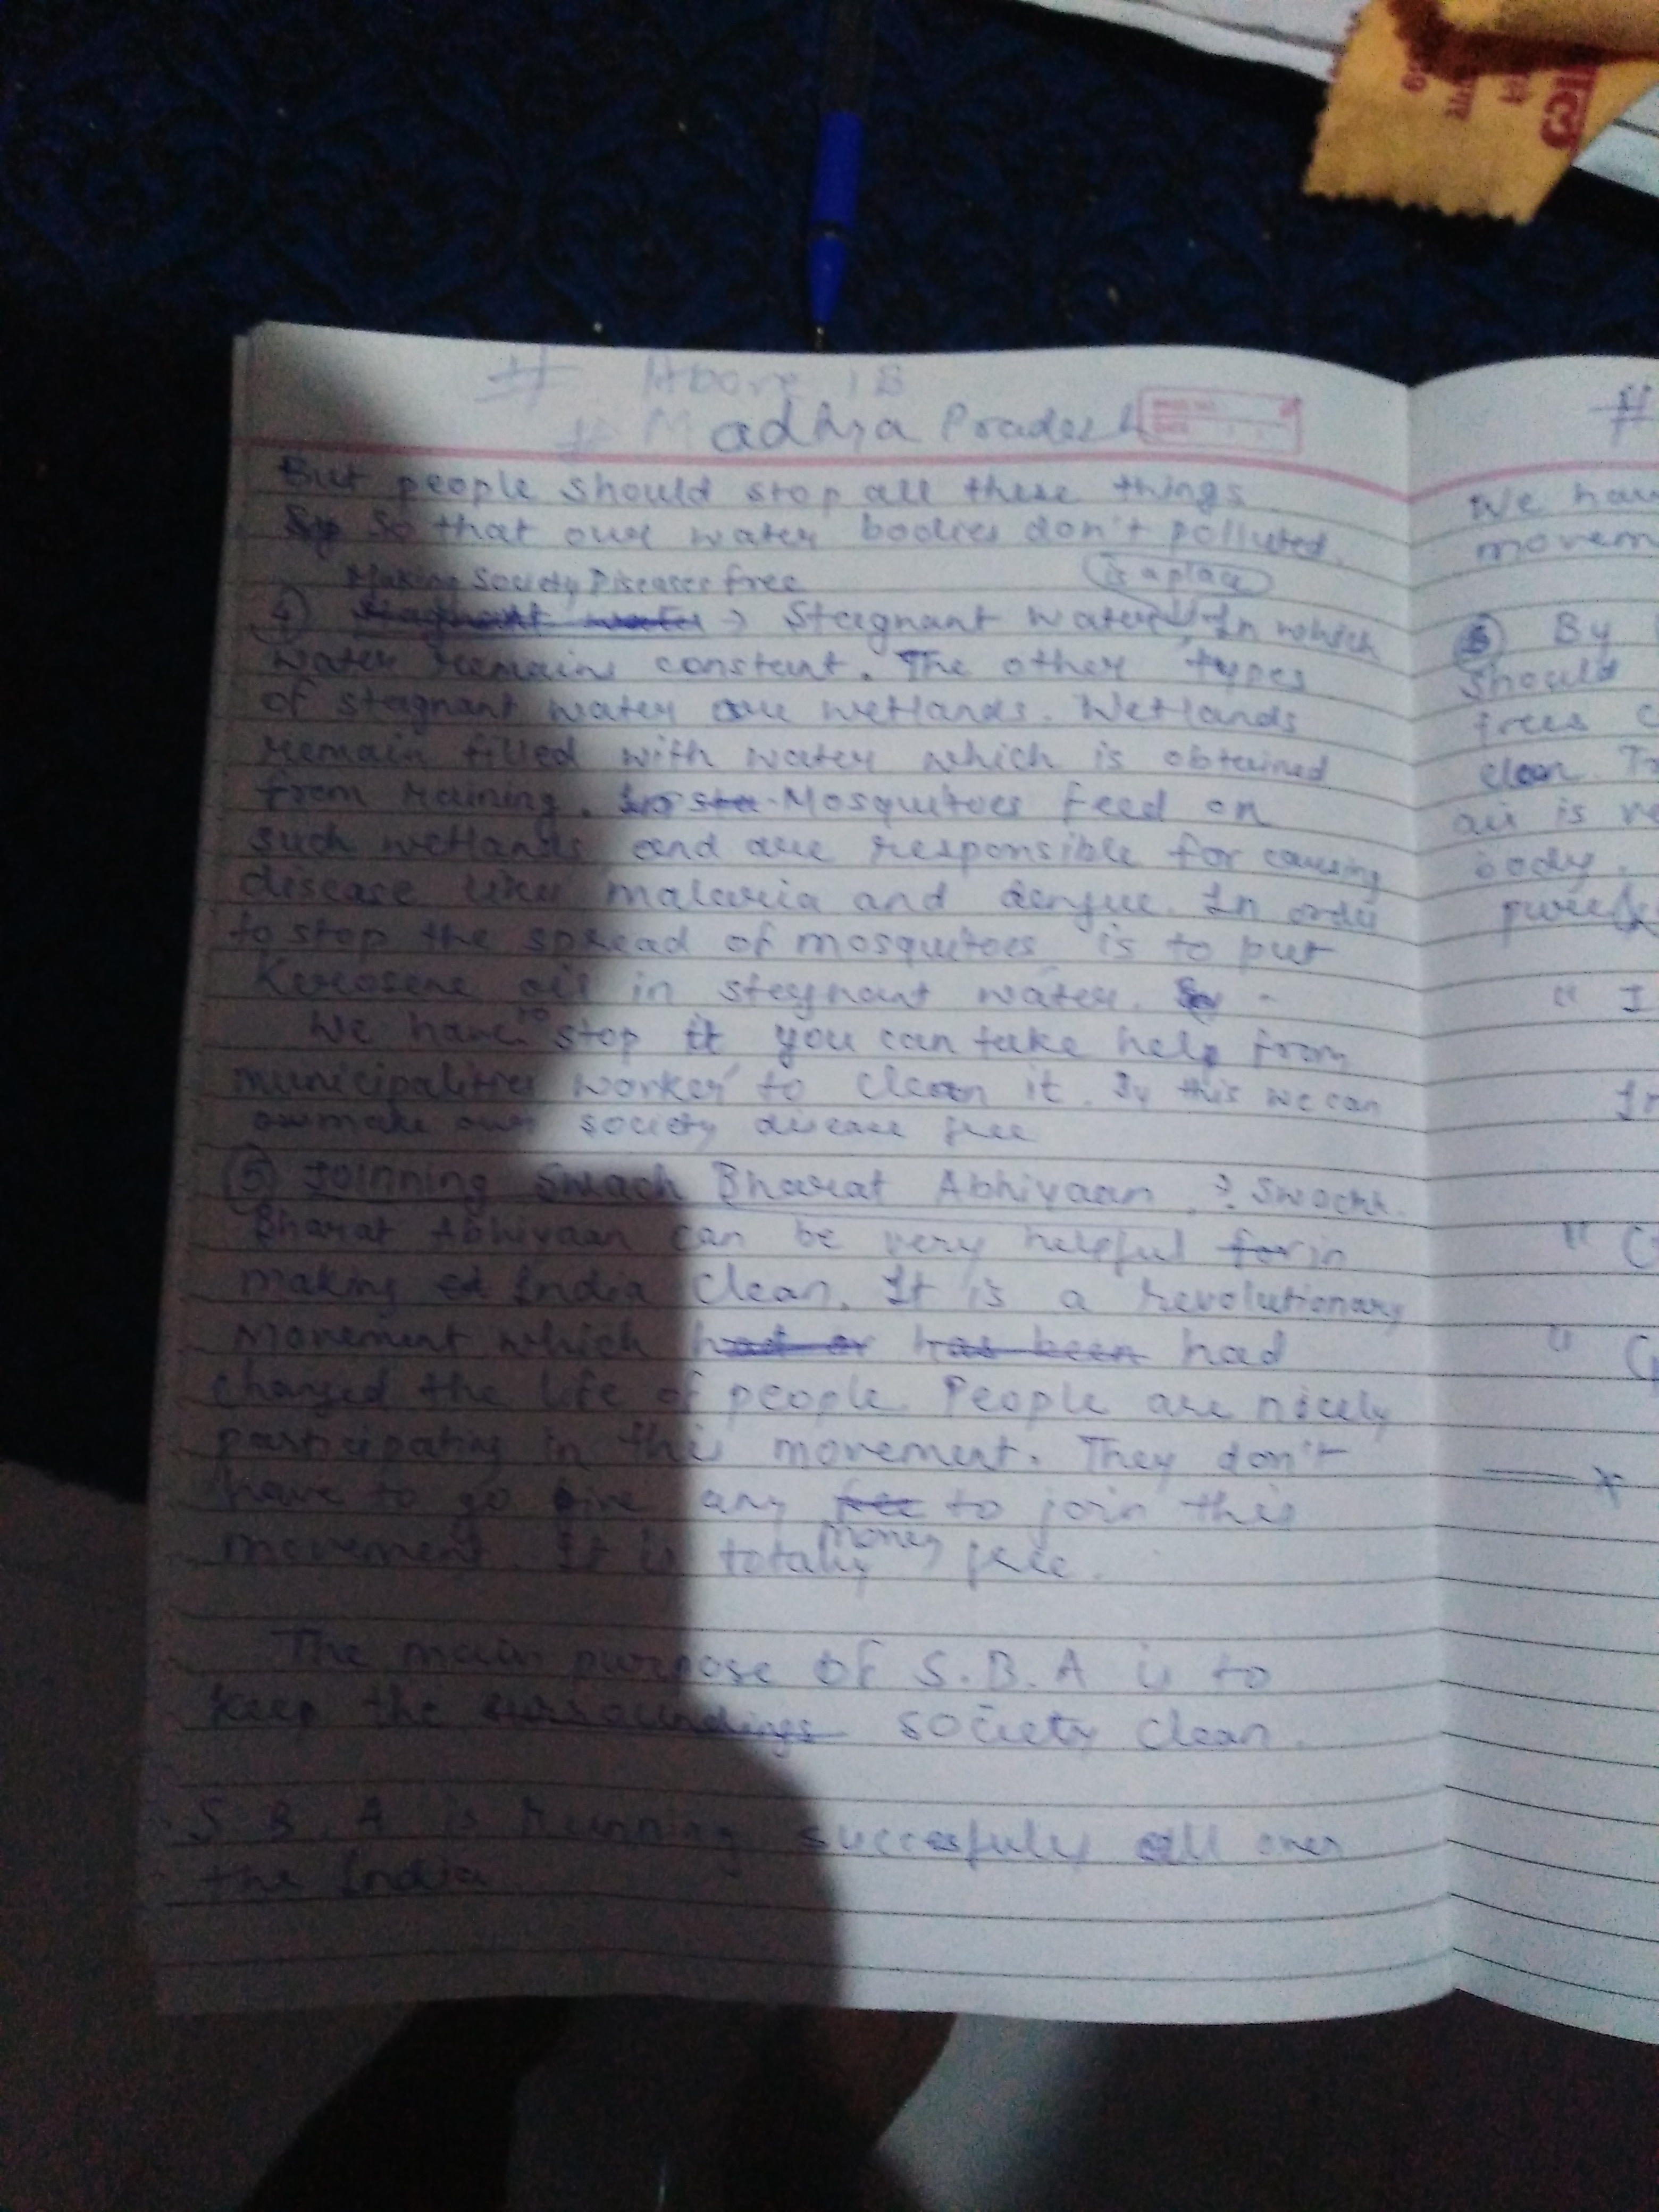 # Above 18
# Madhya Pradesh
But people should stop all these things
So that our water bodies don't polluted.
Making Society Diseases free
is a place
④ Stagnant water → Stagnant water In which
water remains constant. The other types
of stagnant water are wetlands. Wetlands
remain filled with water which is obtained
from raining. Mosquitoes feed on
such wetlands and are responsible for causing
disease like malaria and dengue. In order
to stop the spread of mosquitoes is to put
Kerosene oil in stagnant water.
We have to stop it you can take help from
municipalities worker to clean it. By this we can
make our society disease free
⑤ Joinning Swach Bharat Abhiyaan : Swachh
Bharat Abhiyaan can be very helpful for in
making India clean. It is a revolutionary
Movement which had or has been had
changed the life of people. People are nicely
participating in this movement. They don't
have to go give any fee to join this
money
movement. It is totally free.
The main purpose of S.B.A is to
keep the surroundings society clean.
S.B.A is running succesfuly all over
the India
#
We have
movem
By
should
trees c
clean. Tr
air is re
body.
pure
" I
In
"
"